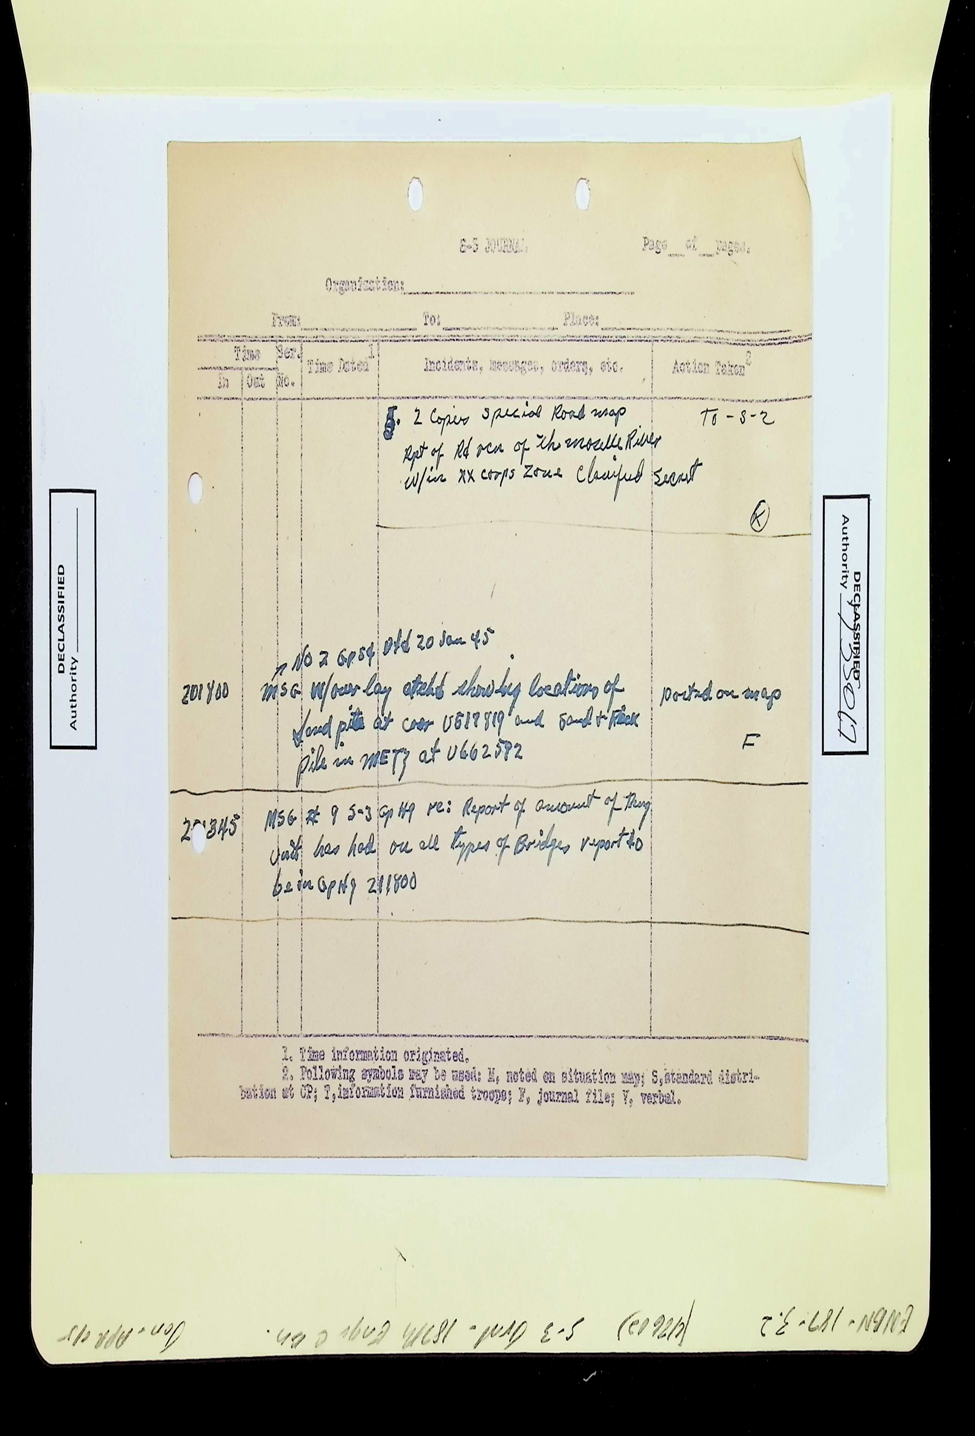 S-3 JOURNAL
Page__of__pages.
Organization:
From: To: Place:
Time Ser. Time Dated1 Incidents, messages, orders, etc. Action Taken2
In Out No.
5. 2 Copies Special Road map To - S-2
Rpt of Rd rcn of the moselle River
W/in XX corps Zone Classified Secret
K
No 2 Gp S4 Dtd 20 Jan 45
201800 MSG W/overlay atchd showing locations of Posted on map
Sand pile at coor U617819 and Sand +
pile in METZ at U662582 F
MSG # 9 S-3 Gp Hq re: Report of amount of Tng
Unit has had on all types of Bridges report to
be in Gp Hq 211800
1. Time information originated.
2. Following symbols may be used: M, noted on situation map; S, standard distri-
bution at CP; T, information furnished troops; F, journal file; V, verbal.
DECLASSIFIED
Authority
DECLASSIFIED
Authority
ENBN-187-3.2 (47602) S-3 Jrnl - 187th Engr C Bn. Jan-Apr 45